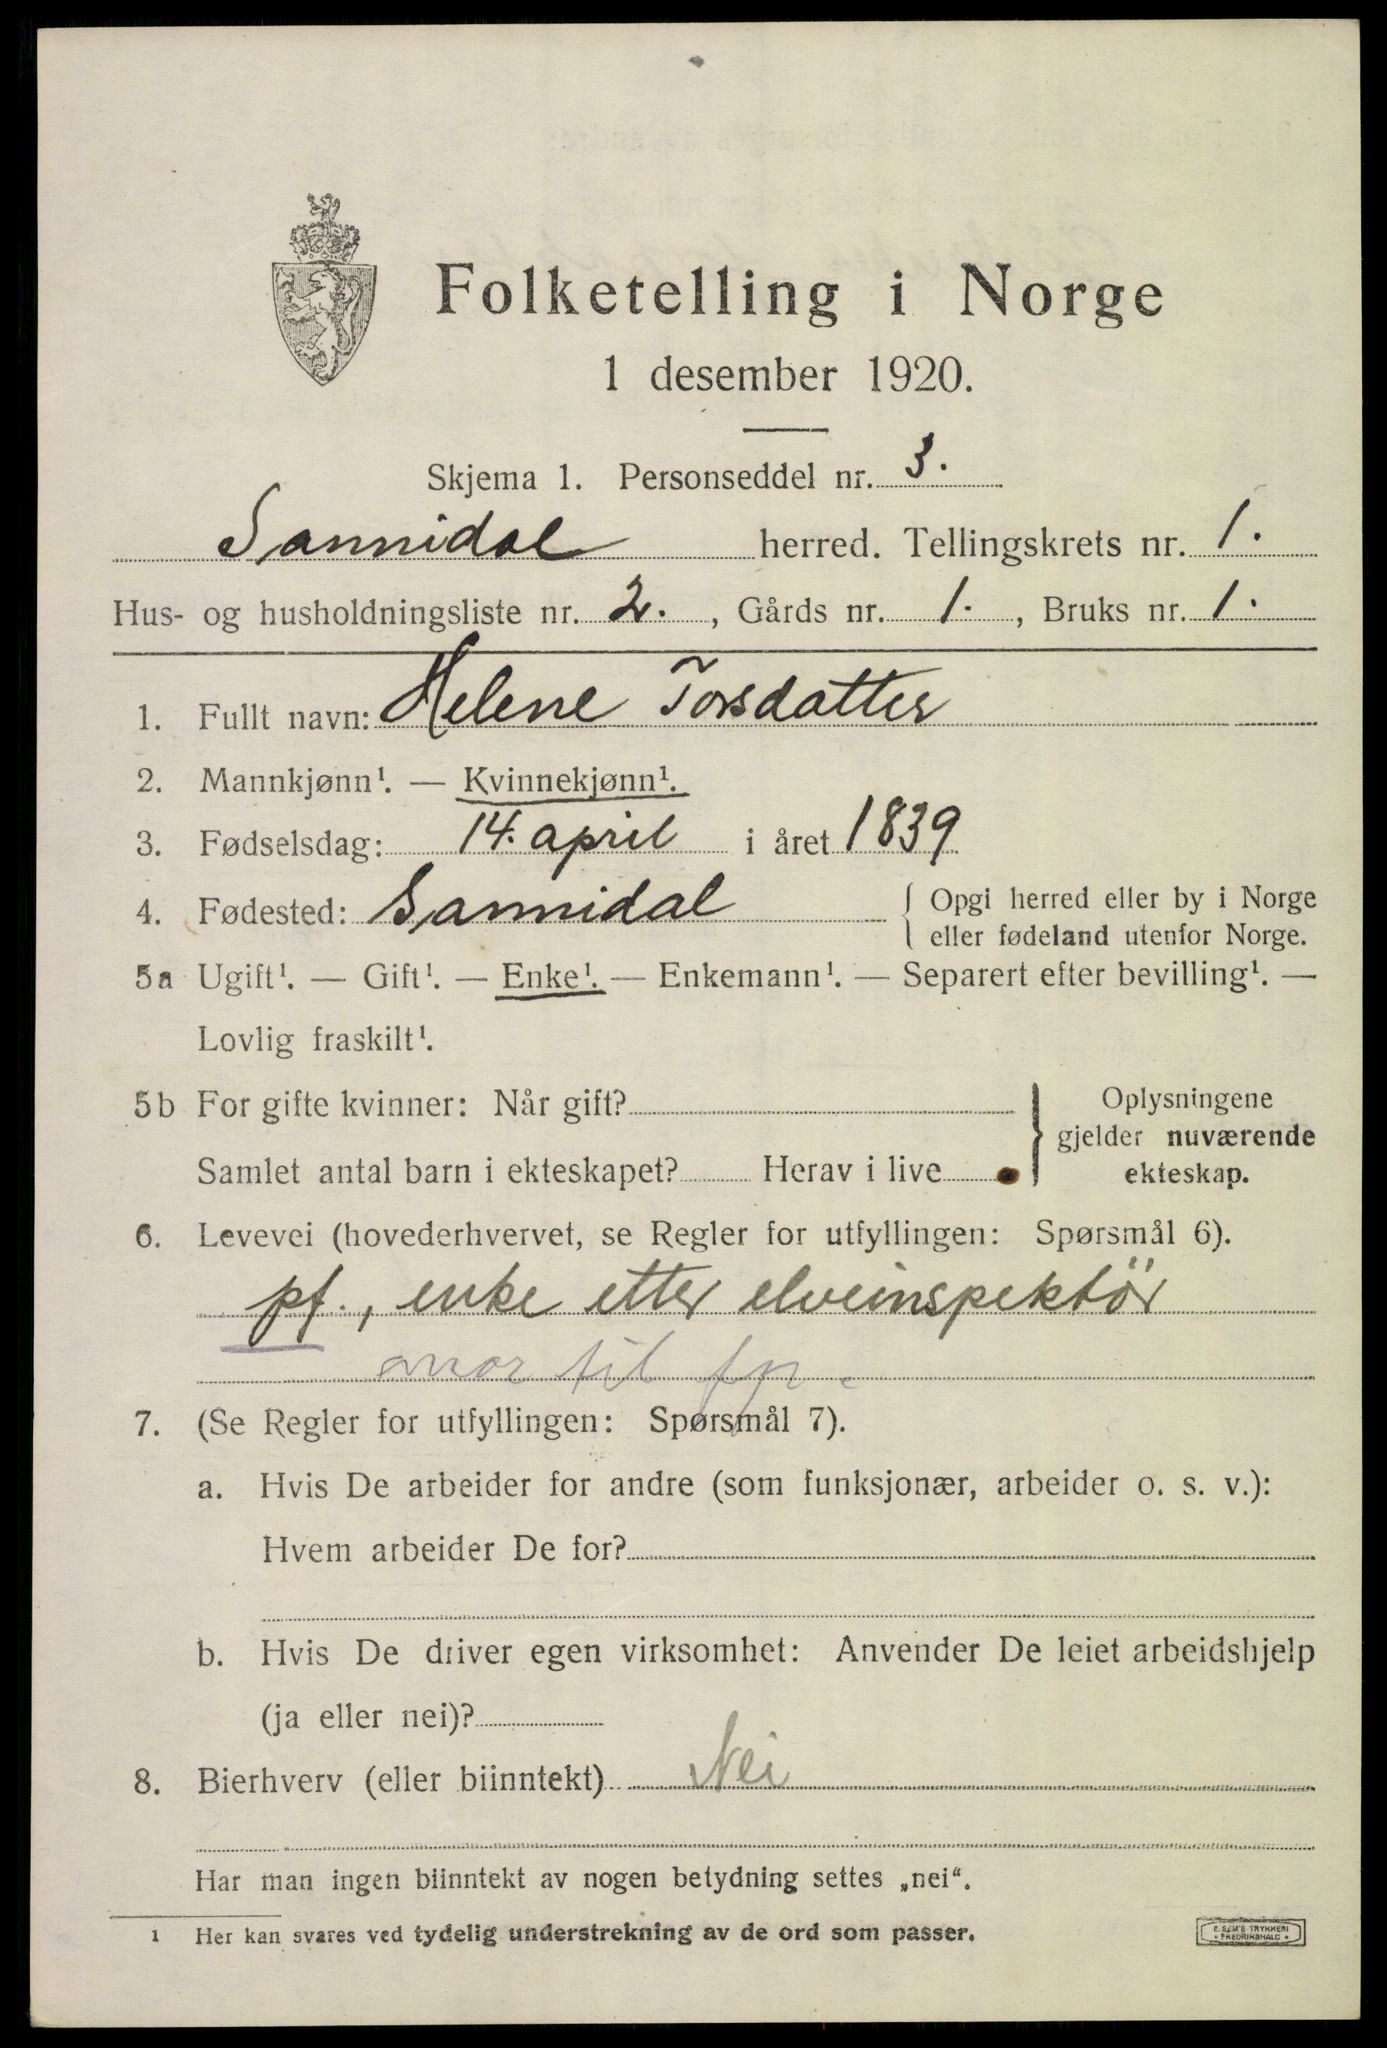 Folketelling i Norge
1 desember 1920.
Skjema 1. Personseddel nr. 3.
Sannidal herred. Tellingskrets nr. 1.
Hus- og husholdningsliste nr. 2., Gårds nr. 1., Bruks nr. 1.
1. Fullt navn: Helene Torsdatter
2. Mannkjønn¹. — Kvinnekjønn¹.
3. Fødselsdag: 14. april i året 1839
4. Fødested: Sannidal { Opgi herred eller by i Norge
eller fødeland utenfor Norge.
5a Ugift¹. — Gift¹. — Enke¹. — Enkemann¹. — Separert efter bevilling¹. —
Lovlig fraskilt¹.
5b For gifte kvinner: Når gift?
Samlet antal barn i ekteskapet? Herav i live
} Oplysningene
gjelder nuværende
ekteskap.
6. Levevei (hovederhvervet, se Regler for utfyllingen: Spørsmål 6).
pf., enke etter elveinspektör
mor til fp.
7. (Se Regler for utfyllingen: Spørsmål 7).
a. Hvis De arbeider for andre (som funksjonær, arbeider o. s. v.):
Hvem arbeider De for?
b. Hvis De driver egen virksomhet: Anvender De leiet arbeidshjelp
(ja eller nei)?
8. Bierhverv (eller biinntekt) Nei
Har man ingen biinntekt av nogen betydning settes „nei“.
¹ Her kan svares ved tydelig understrekning av de ord som passer.
E. SEM'S TRYKKERI
• FREDRIKSHALD •